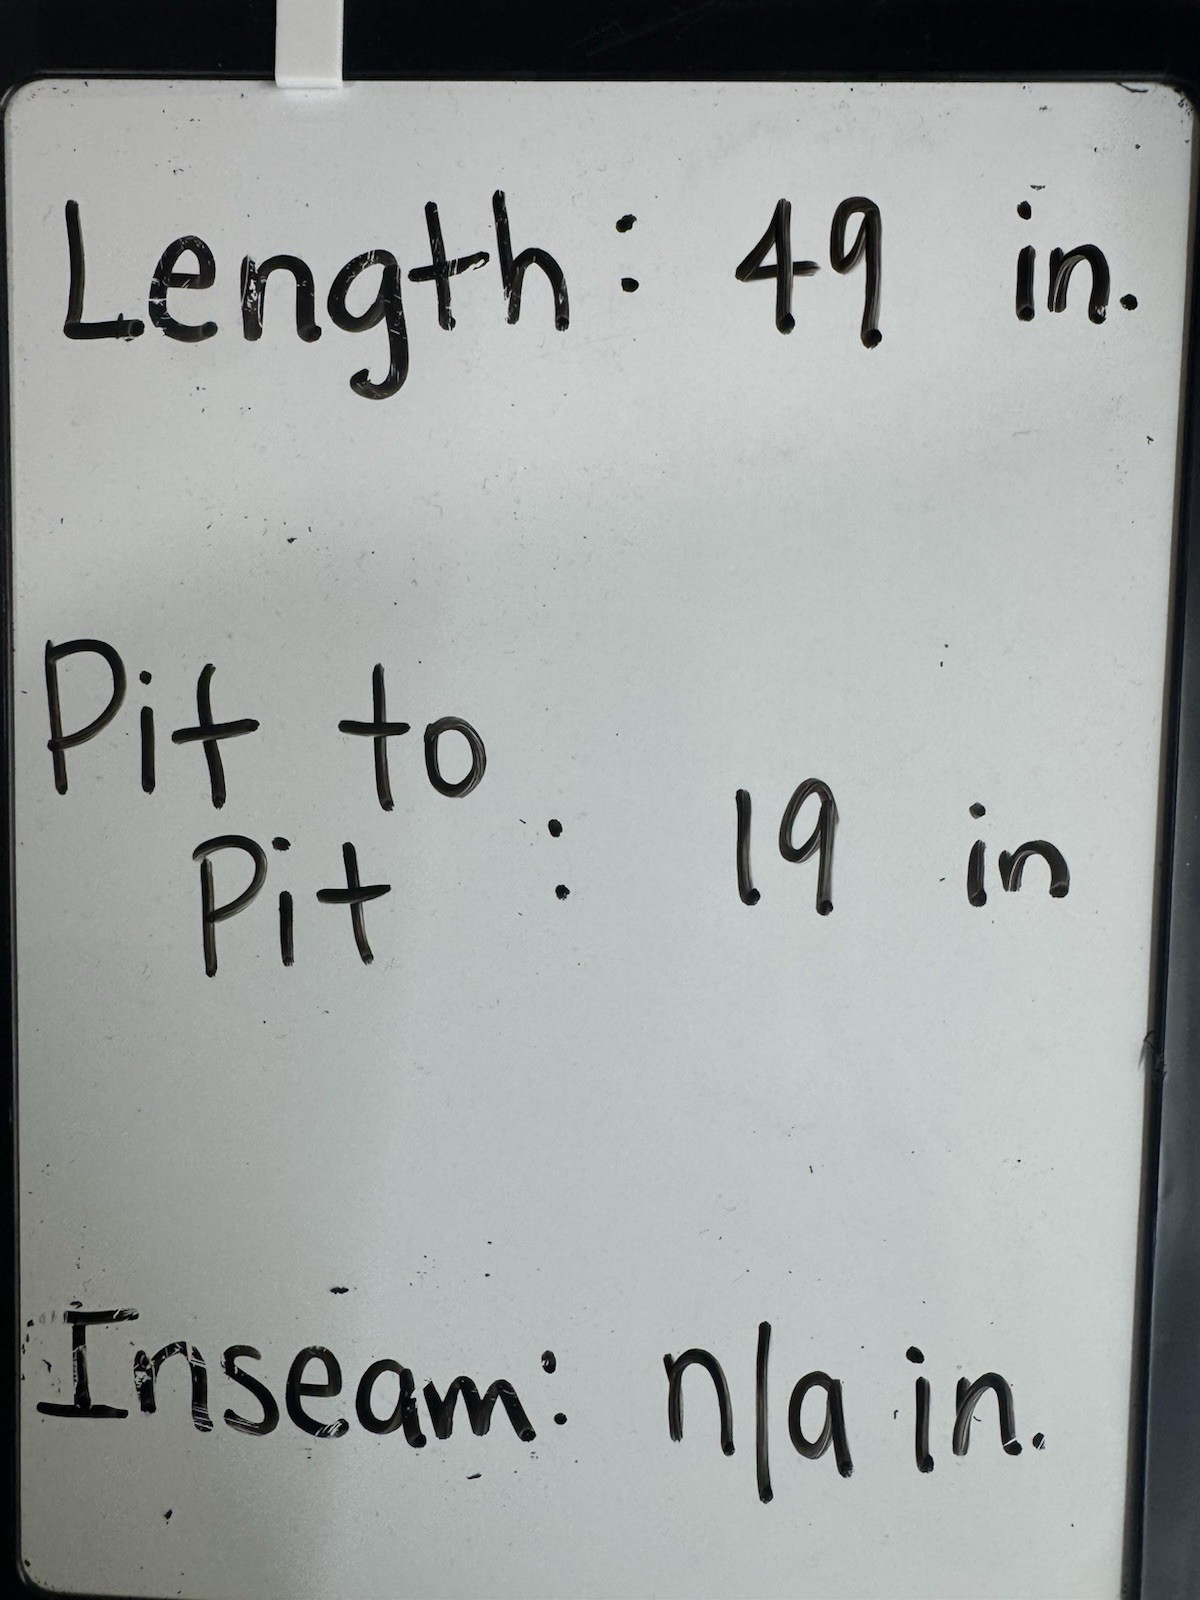 Length: 49 in.
Pit to
Pit : 19 in
Inseam: n/a in.